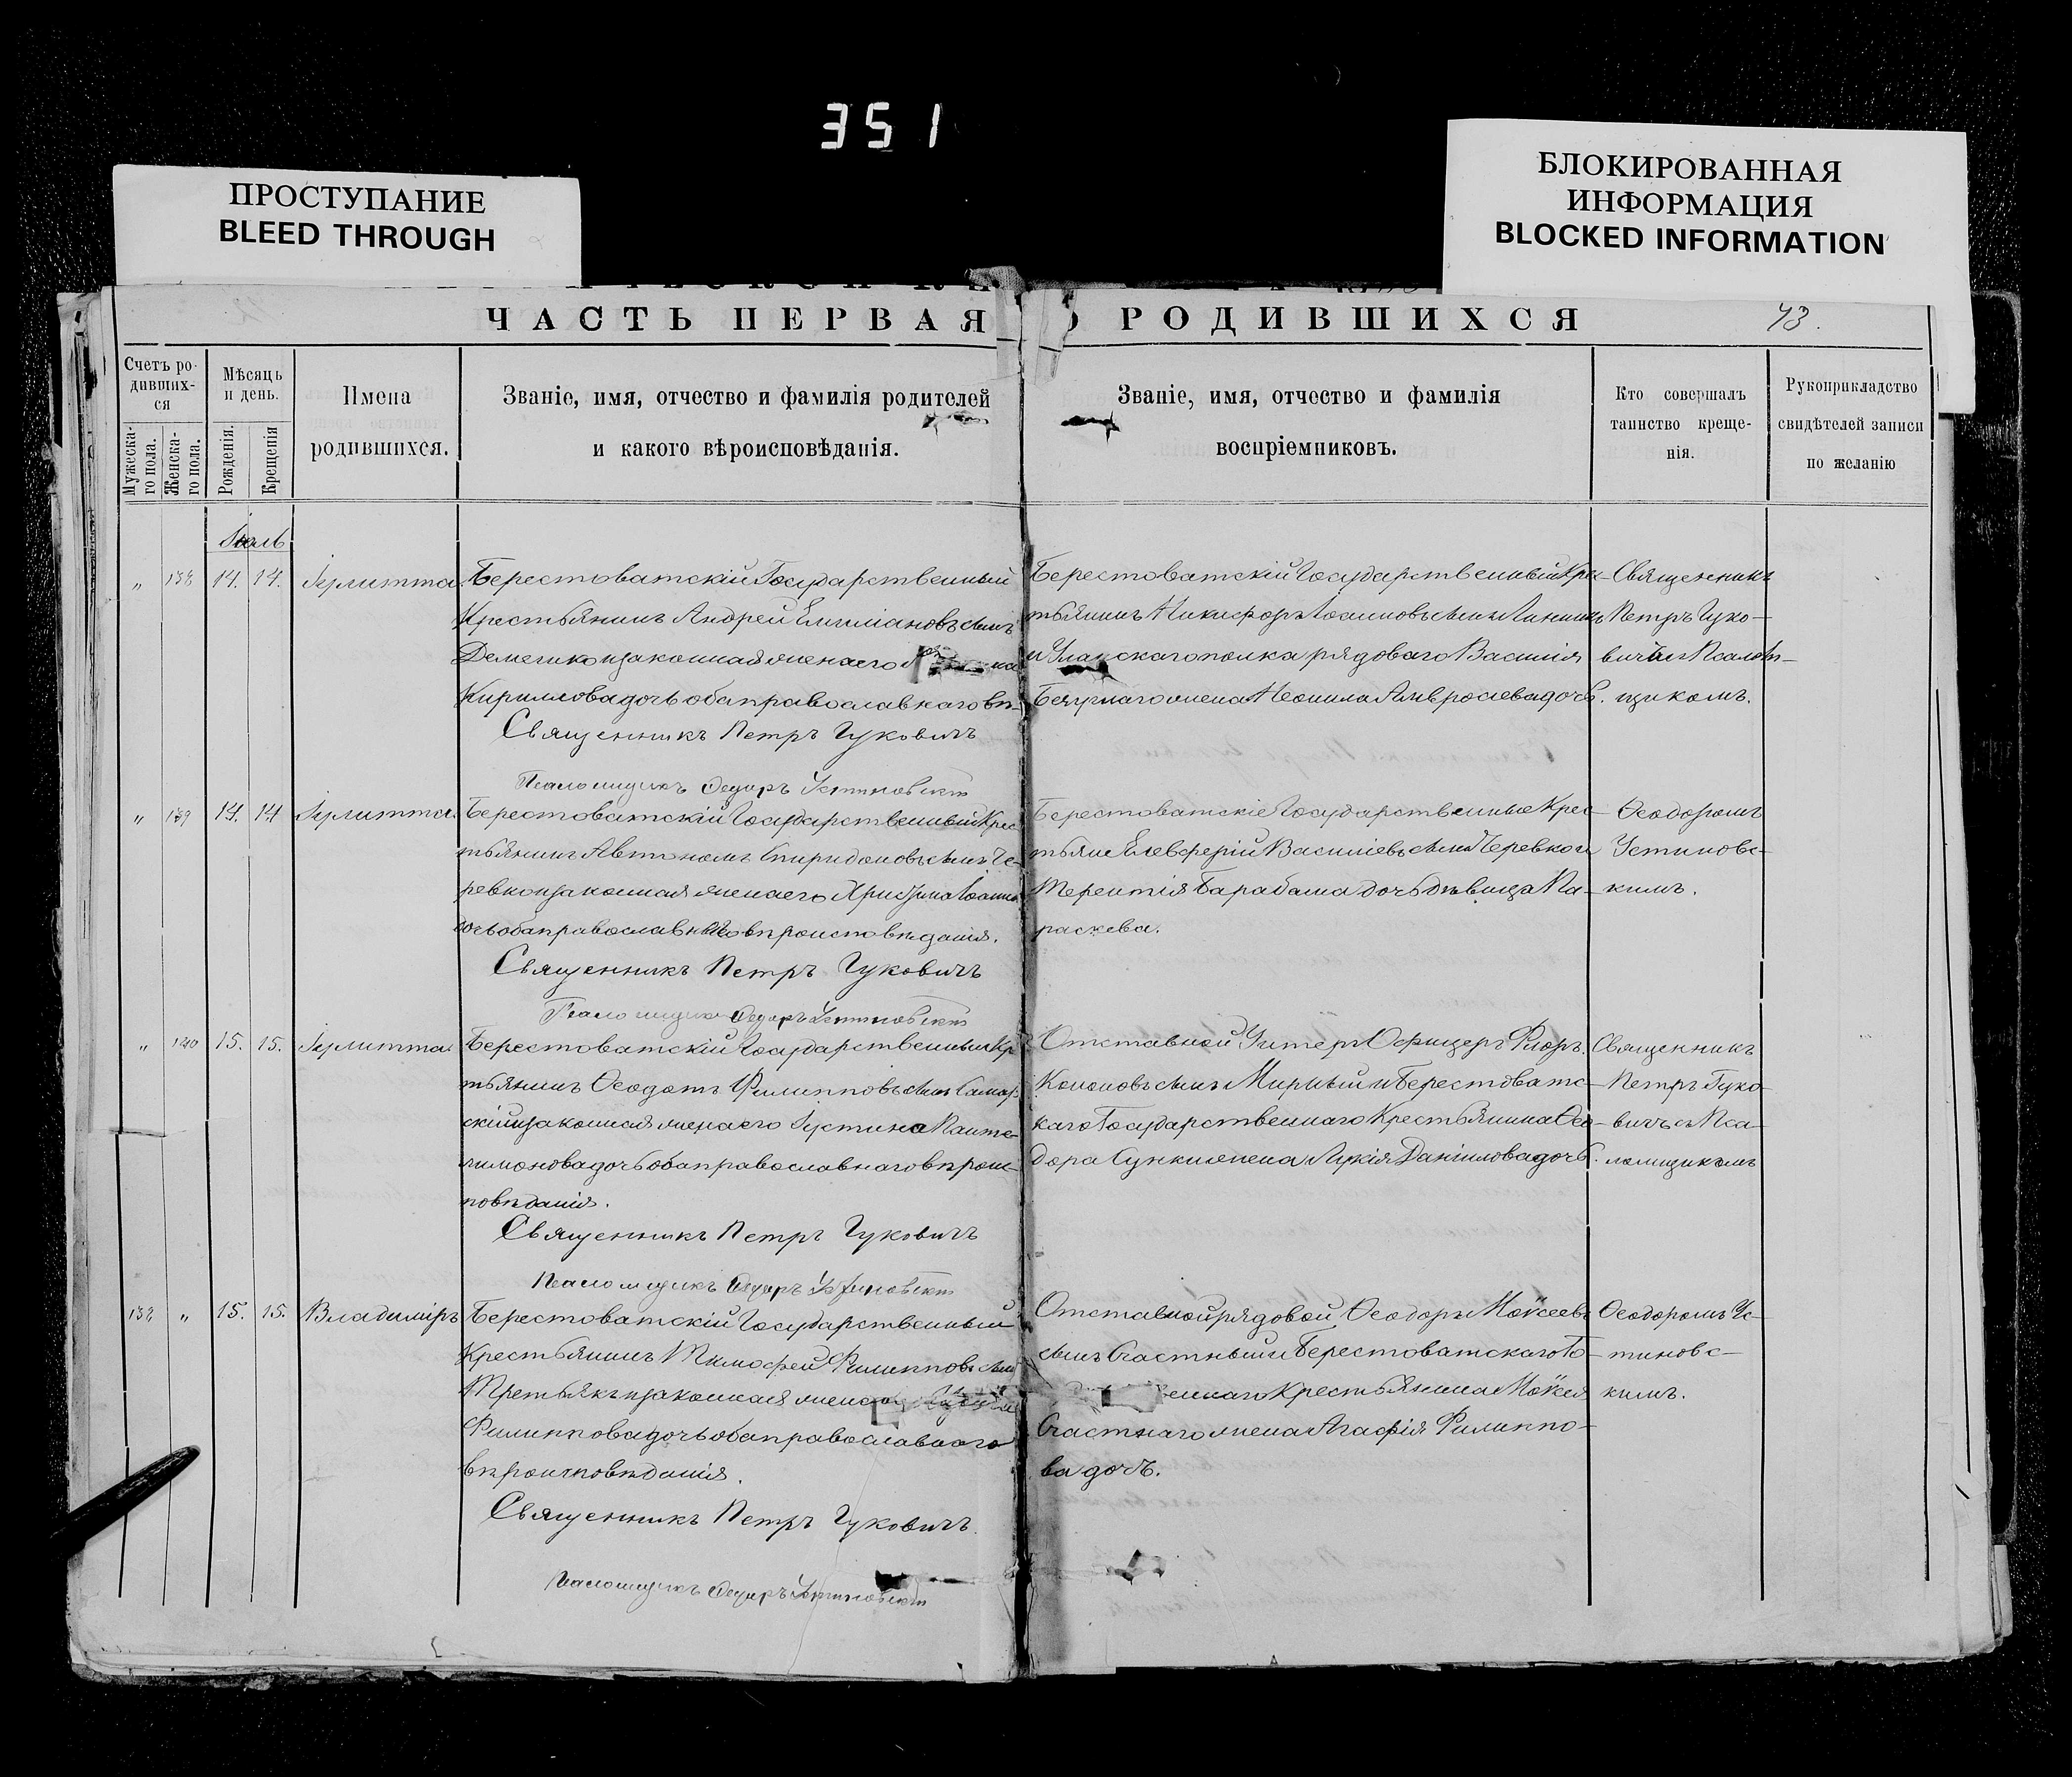 351
ПРОСТУПАНИЕ
BLEED THROUGH
БЛОКИРОВАННАЯ
ИНФОРМАЦИЯ
BLOCKED INFORMATION
ЧАСТЬ ПЕРВАЯ О РОДИВШИХСЯ
43.
Счетъ ро-
дивших-
ся
Мужеска-
го пола.
Женска-
го пола.
Мѣсяцъ
и день.
Рожденія.
Крещенія
Имена
родившихся.
Званіе, имя, отчество и фамилія родителей
и какого вѣроисповѣданія.
Званіе, имя, отчество и фамилія
воспріемниковъ.
Кто совершалъ
таинство креще-
нія.
Рукоприкладство
свидѣтелей записи
по желанію
Іюль
" 138 14. 14. Іулитта
Берестоватскій Государственный
Крестьянинъ Андрей Емиліановъ сынъ
законная жена его
Кириллова дочь оба православнаго вѣ-
Священникъ Петръ Гуковичъ
Псаломщикъ Федоръ Устиновскій
Берестоватскій Государственный Крес-
тьянинъ Никифоръ Іоанновъ сынъ
и Уланскаго полка рядоваго Василія
жена Неонила Амвросіева дочь.
Священникъ
Петръ Гуко-
вичъ съ Псалом-
щикомъ.
" 139 14. 14 Іулитта.
Берестоватскій Государственный Крес-
тьянинъ Автономъ Спиридоновъ сынъ Че-
ревко и законная жена его Христина Іоанно
дочь оба православнаго вѣроисповѣданія.
Священникъ Петръ Гуковичъ
Псаломщикъ Федоръ Устиновскій
Берестоватскіе Государственные Крес-
тьяне Елевферій Василіевъ сынъ Черевко и
Терентія Барабаша дочь дѣвица Па-
раскева.
Ѳеодоромъ
Устиновс-
кимъ.
" 140 15. 15. Іулитта
Берестоватскій Государственный Кр
тьянинъ Ѳеодотъ Филипповъ сынъ Самар-
скій и законная жена его Іустина Панте-
лимонова дочь оба православнаго вѣроис-
повѣданія.
Священникъ Петръ Гуковичъ
Псаломщикъ Федоръ Устиновскій
Отставной Унтеръ Офицеръ Флоръ
Кононовъ сынъ Мирный и Берестоватс-
каго Государственнаго Крестьянина Ѳео-
дора жена Лукія Даніилова дочь.
Священникъ
Петръ Гуко-
вичъ съ Пса-
ломщикомъ
138 " 15. 15. Владимiръ
Берестоватскій Государственный
Крестьянинъ Тимофей Филипповъ сынъ
Третьякъ и законная жена
Филиппова дочь оба православнаго
вѣроисповѣданія.
Священникъ Петръ Гуковичъ.
Псаломщикъ Федоръ Устиновскій
Отставной рядовой Ѳеодоръ Моѵсеевъ
сынъ Счастный и Берестоватскаго Го-
еннаго Крестьянина Моѵсея
Счастнаго жена Агафія Филиппо-
ва дочь.
Ѳеодоромъ Ус-
тиновс-
кимъ.